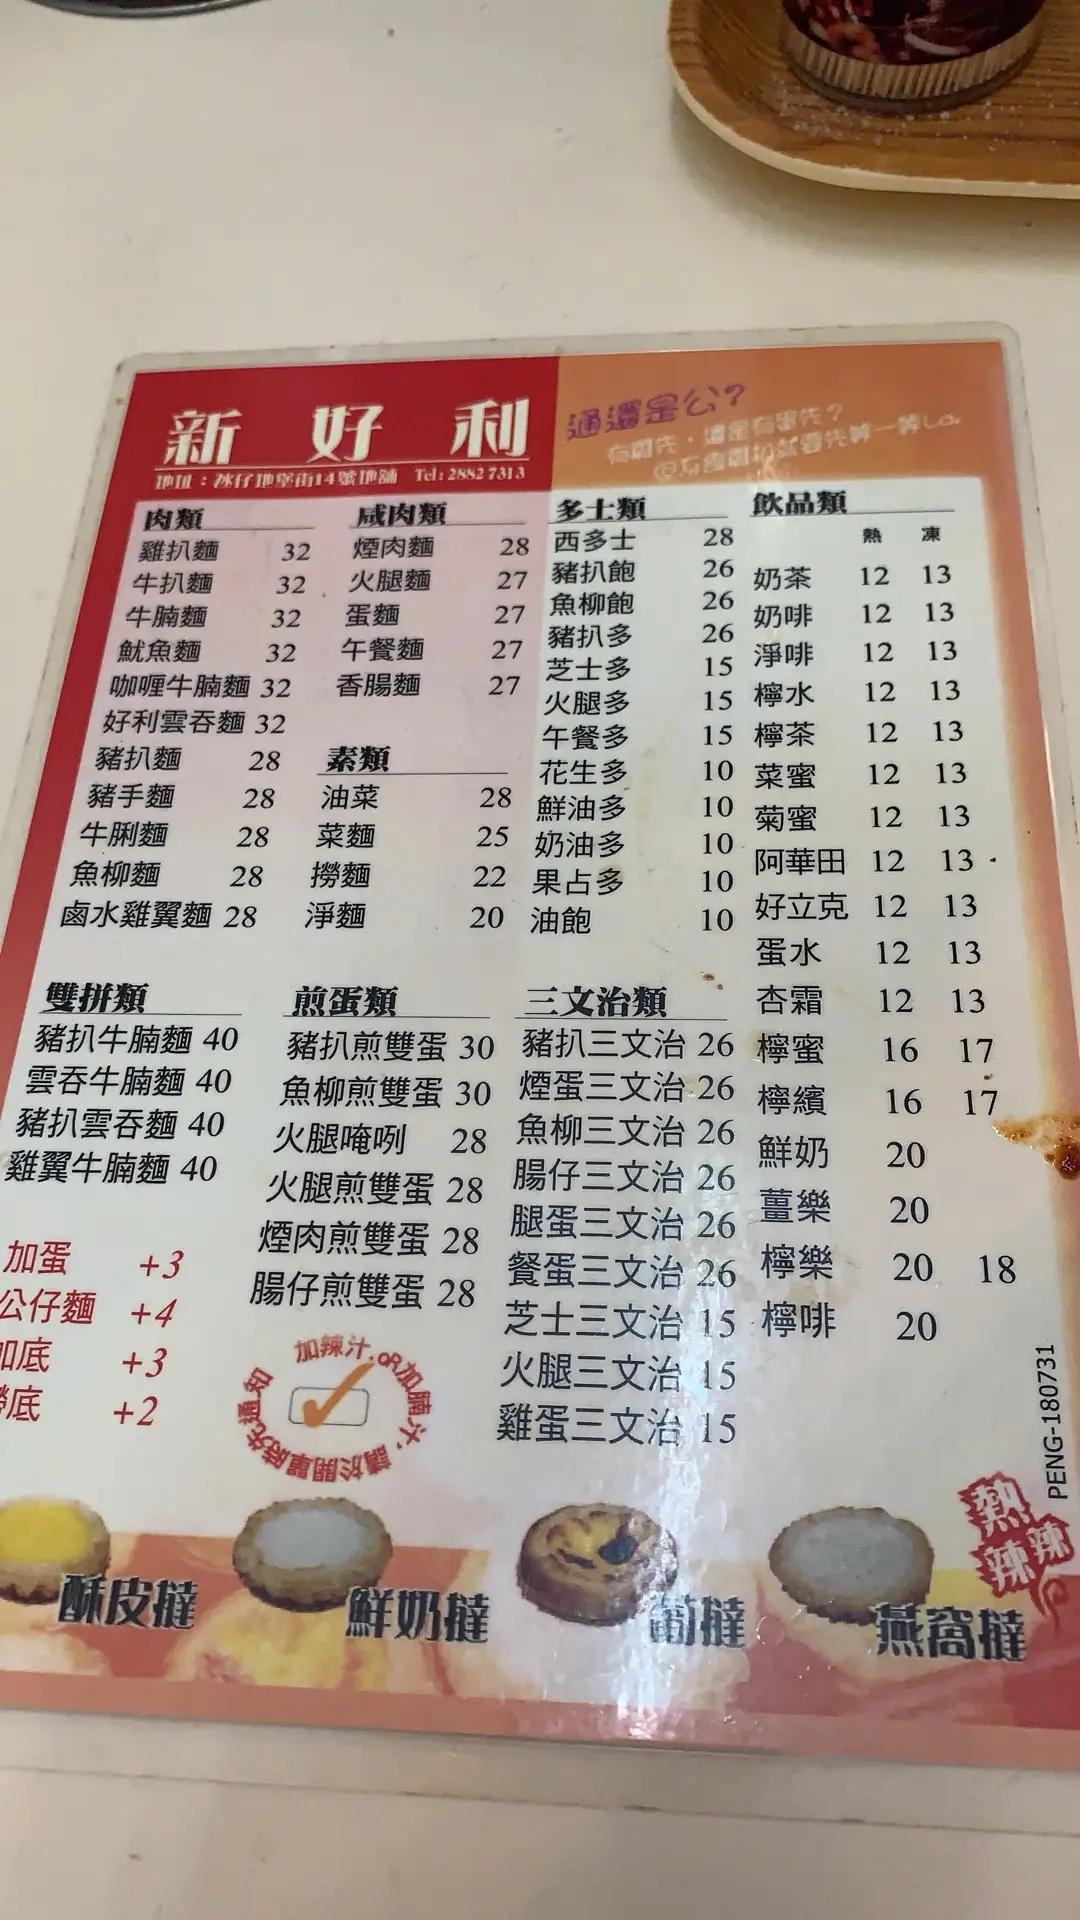 新好利
地址：氹仔地堡街14號地舖 Tel: 2882 7313
通還是公?
有雞先，還是有蛋先？
肉類
雞扒麵 32
牛扒麵 32
牛腩麵 32
魷魚麵 32
咖喱牛腩麵 32
好利雲吞麵 32
豬扒麵 28
豬手麵 28
牛脷麵 28
魚柳麵 28
鹵水雞翼麵 28
咸肉類
煙肉麵 28
火腿麵 27
蛋麵 27
午餐麵 27
香腸麵 27
素類
油菜 28
菜麵 25
撈麵 22
淨麵 20
多士類
西多士 28
豬扒飽 26
魚柳飽 26
豬扒多 26
芝士多 15
火腿多 15
午餐多 15
花生多 10
鮮油多 10
奶油多 10
果占多 10
油飽 10
飲品類
熱 凍
奶茶 12 13
奶啡 12 13
淨啡 12 13
檸水 12 13
檸茶 12 13
菜蜜 12 13
菊蜜 12 13
阿華田 12 13
好立克 12 13
蛋水 12 13
杏霜 12 13
檸蜜 16 17
檸繽 16 17
鮮奶 20
薑樂 20
檸樂 20 18
檸啡 20
雙拼類
豬扒牛腩麵 40
雲吞牛腩麵 40
豬扒雲吞麵 40
雞翼牛腩麵 40
加蛋 +3
公仔麵 +4
加底 +3
底 +2
煎蛋類
豬扒煎雙蛋 30
魚柳煎雙蛋 30
火腿唵咧 28
火腿煎雙蛋 28
煙肉煎雙蛋 28
腸仔煎雙蛋 28
加辣汁.OR加腩汁，請於開單時先通知
三文治類
豬扒三文治 26
煙蛋三文治 26
魚柳三文治 26
腸仔三文治 26
腿蛋三文治 26
餐蛋三文治 26
芝士三文治 15
火腿三文治 15
雞蛋三文治 15
PENG-180731
熱辣辣
酥皮撻
鮮奶撻
葡撻
燕窩撻